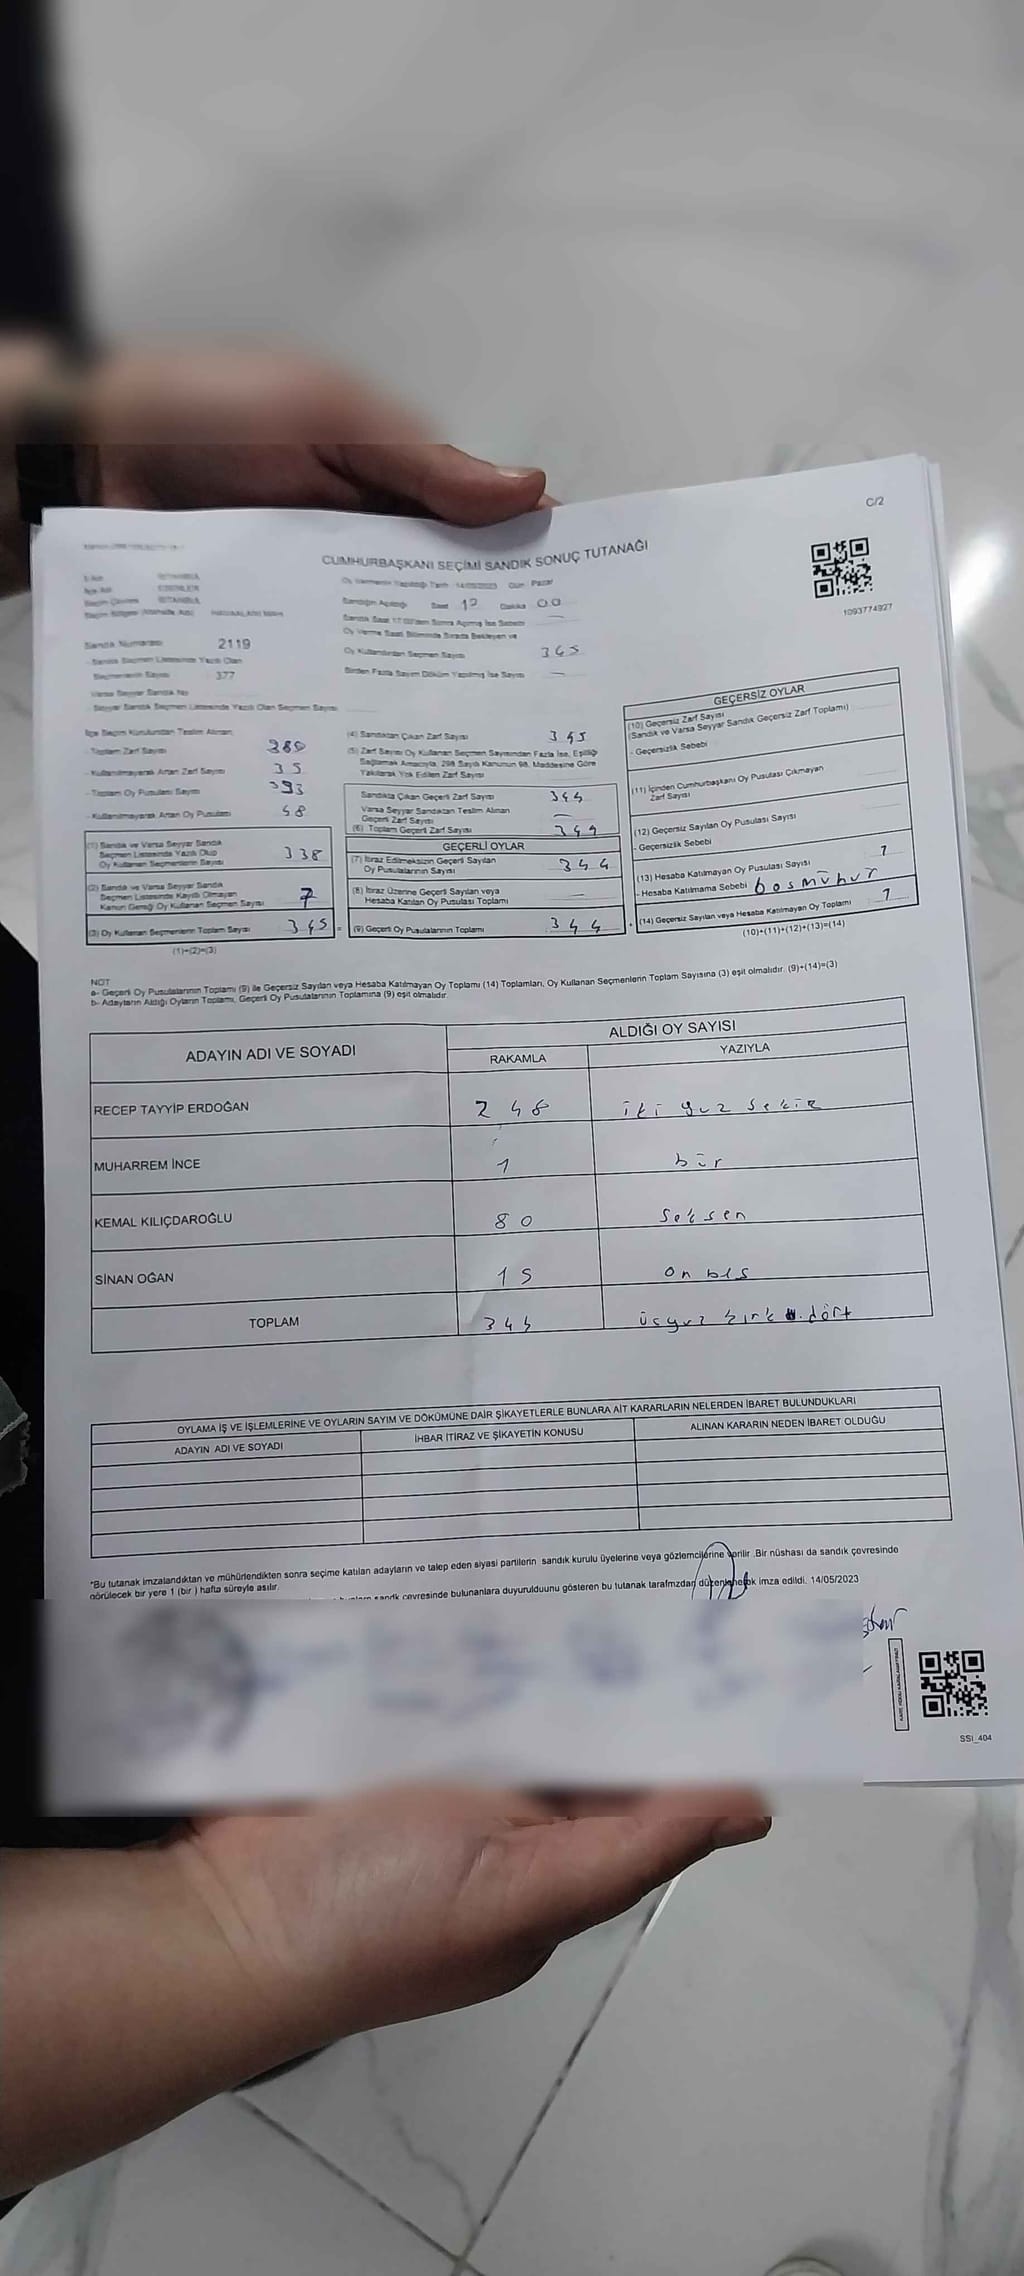 C/2
CUMHURBAŞKANI SEÇİMİ SANDIK SONUÇ TUTANAĞI
Oy Vermenin Yapıldığı Tarih 14/05/2023 Gün Pazar
Sandığın Açıldığı Saat Dakika 00
Sandık Saat 17:00'den Sonra Açılmış İse Sebebi
Oy Verme Saati Bitiminde Sırada Bekleyen ve
Oy Kullandırılan Seçmen Sayısı 345
Birden Fazla Sayım Döküm Yapılmış İse Sayısı —
1093774927
Sandık Numarası 2119
- Sandık Seçmen Listesinde Yazılı Olan
Seçmenlerin Sayısı 377
Varsa Seyyar Sandık No
- Seyyar Sandık Seçmen Listesinde Yazılı Olan Seçmen Sayısı
İlçe Seçim Kurulundan Teslim Alınan:
- Toplam Zarf Sayısı 380
- Kullanılmayarak Artan Zarf Sayısı 35
- Toplam Oy Pusulası Sayısı 393
- Kullanılmayarak Artan Oy Pusulası 48
(1) Sandık ve Varsa Seyyar Sandık
Seçmen Listesinde Yazılı Olup
Oy Kullanan Seçmenlerin Sayısı 338
(2) Sandık ve Varsa Seyyar Sandık
Seçmen Listesinde Kayıtlı Olmayan
Kanun Gereği Oy Kullanan Seçmen Sayısı 7
(3) Oy Kullanan Seçmenlerin Toplam Sayısı 345
(1)+(2)=(3)
(4) Sandıktan Çıkan Zarf Sayısı 345
(5) Zarf Sayısı Oy Kullanan Seçmen Sayısından Fazla İse, Eşitliği
Sağlamak Amacıyla, 298 Sayılı Kanunun 98. Maddesine Göre
Yakılarak Yok Edilen Zarf Sayısı
Sandıkta Çıkan Geçerli Zarf Sayısı 344
Varsa Seyyar Sandıktan Teslim Alınan
Geçerli Zarf Sayısı —
(6) Toplam Geçerli Zarf Sayısı 344
GEÇERLİ OYLAR
(7) İtiraz Edilmeksizin Geçerli Sayılan
Oy Pusulalarının Sayısı 344
(8) İtiraz Üzerine Geçerli Sayılan veya
Hesaba Katılan Oy Pusulası Toplamı —
(9) Geçerli Oy Pusulalarının Toplamı 344
GEÇERSİZ OYLAR
(10) Geçersiz Zarf Sayısı
(Sandık ve Varsa Seyyar Sandık Geçersiz Zarf Toplamı)
- Geçersizlik Sebebi
(11) İçinden Cumhurbaşkanı Oy Pusulası Çıkmayan
Zarf Sayısı
(12) Geçersiz Sayılan Oy Pusulası Sayısı
- Geçersizlik Sebebi
(13) Hesaba Katılmayan Oy Pusulası Sayısı 1
- Hesaba Katılmama Sebebi bosmühür
(14) Geçersiz Sayılan veya Hesaba Katılmayan Oy Toplamı 1
(10)+(11)+(12)+(13)=(14)
NOT
a- Geçerli Oy Pusulalarının Toplamı (9) ile Geçersiz Sayılan veya Hesaba Katılmayan Oy Toplamı (14) Toplamları, Oy Kullanan Seçmenlerin Toplam Sayısına (3) eşit olmalıdır. (9)+(14)=(3)
b- Adayların Aldığı Oyların Toplamı, Geçerli Oy Pusulalarının Toplamına (9) eşit olmalıdır.
ADAYIN ADI VE SOYADI ALDIĞI OY SAYISI
RAKAMLA YAZIYLA
RECEP TAYYİP ERDOĞAN 248 iki yuz sekiz
MUHARREM İNCE 1 bir
KEMAL KILIÇDAROĞLU 80 Seksen
SİNAN OĞAN 15 on bes
TOPLAM 344 üsyuz kırk dört
OYLAMA İŞ VE İŞLEMLERİNE VE OYLARIN SAYIM VE DÖKÜMÜNE DAİR ŞİKAYETLERLE BUNLARA AİT KARARLARIN NELERDEN İBARET BULUNDUKLARI
ADAYIN ADI VE SOYADI İHBAR İTİRAZ VE ŞİKAYETİN KONUSU ALINAN KARARIN NEDEN İBARET OLDUĞU
*Bu tutanak imzalandıktan ve mühürlendikten sonra seçime katılan adayların ve talep eden siyasi partilerin sandık kurulu üyelerine veya gözlemcilerine verilir .Bir nüshası da sandık çevresinde
görülecek bir yere 1 (bir ) hafta süreyle asılır.
sandık çevresinde bulunanlara duyurulduunu gösteren bu tutanak tarafmzdan düzenlenerek imza edildi. 14/05/2023
SSI_404